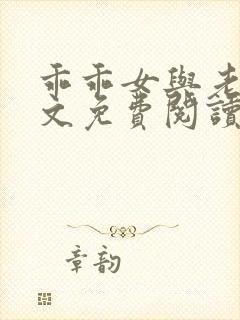 乖乖女與老
文免費閱讀
章韵